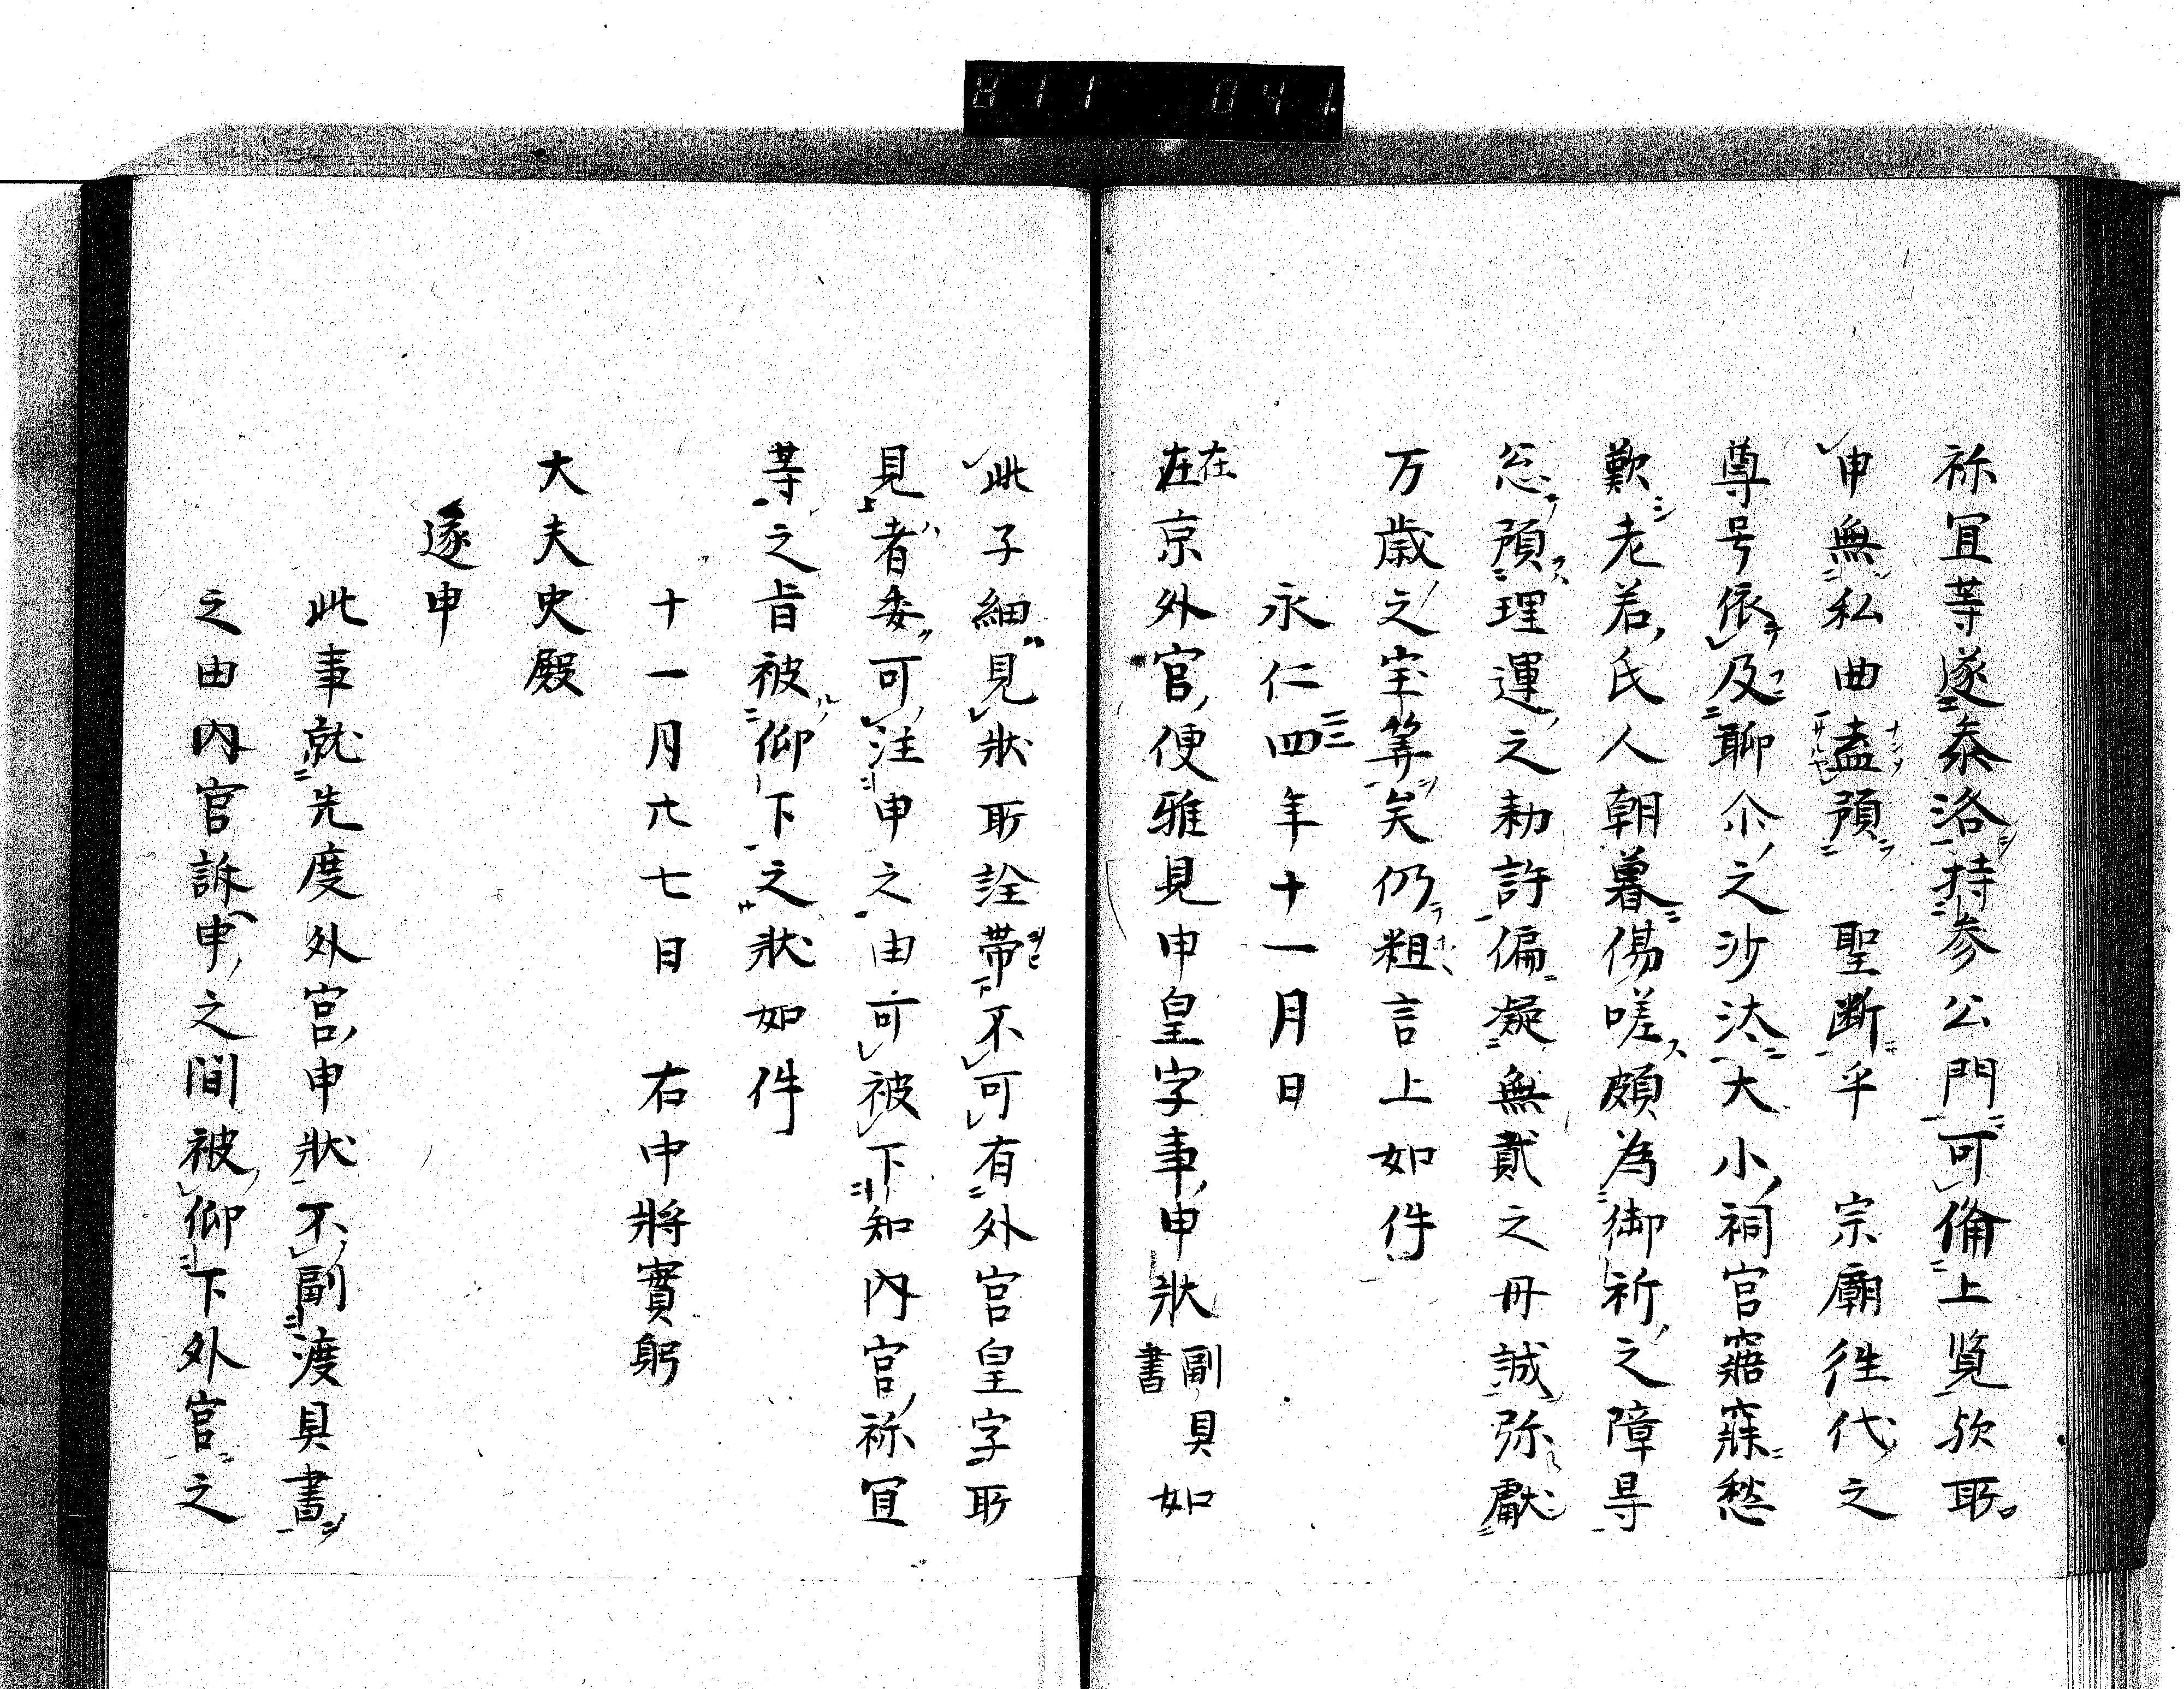 811 041
祢冝等遂㳟洛持参公門可備上覧欤所
申無私曲盍預　聖断乎　宗廟徃代之
尊号依及聊尒之沙汰大小祠官寤寐愁
歎老若氏人朝暮傷嗟頗為御祈之障㝵
忩預理運之勅許偏凝無貳之丹誠弥獻
万歳之宝筭矣仍粗言上如件
永仁四年十一月日
在京外宮使雅見申皇字事申状副具書如
此子細見状所詮帯不可有外宮皇字所
見者委可注申之由可被下知内宮祢冝
等之旨被仰下之状如件
十一月廿七日　右中將實躬
大夫史殿
遂申
此事就先度外宮申状不副渡具書
之由内宮訴申之間被仰下外宮之